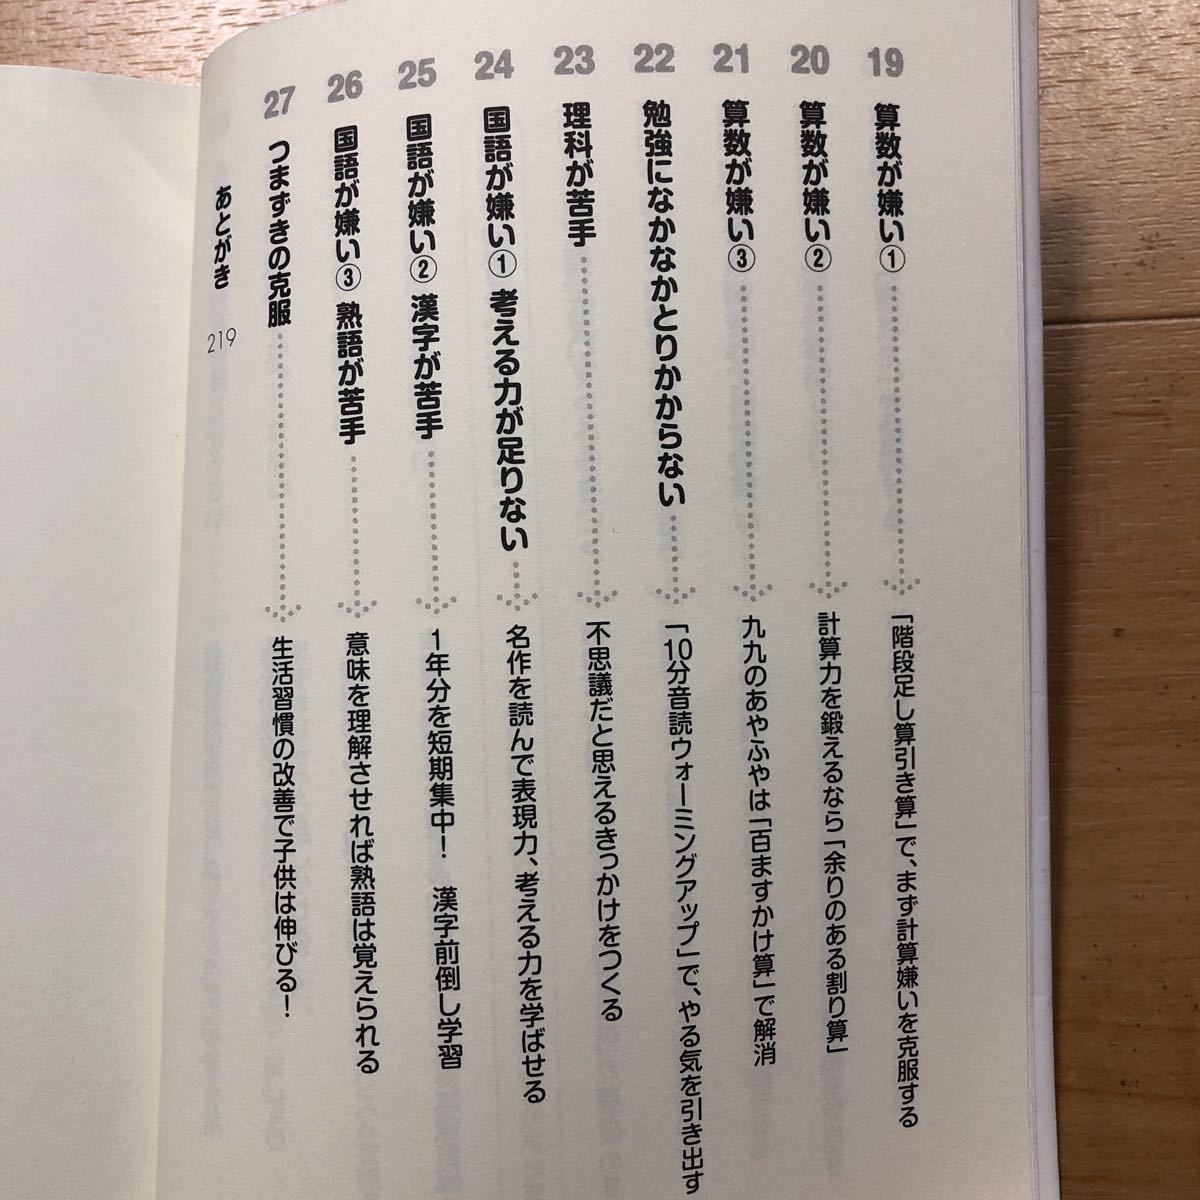 19 算数が嫌い① 「階段足し算引き算」で、まず計算嫌いを克服する
20 算数が嫌い② 計算力を鍛えるなら「余りのある割り算」
21 算数が嫌い③ 九九のあやふやは「百ますかけ算」で解消
22 勉強になかなかとりかからない 「10分音読ウォーミングアップ」で、やる気を引き出す
23 理科が苦手 不思議だと思えるきっかけをつくる
24 国語が嫌い① 考える力が足りない 名作を読んで表現力、考える力を学ばせる
25 国語が嫌い② 漢字が苦手 1年分を短期集中! 漢字前倒し学習
26 国語が嫌い③ 熟語が苦手 意味を理解させれば熟語は覚えられる
27 つまずきの克服 生活習慣の改善で子供は伸びる!
あとがき 219